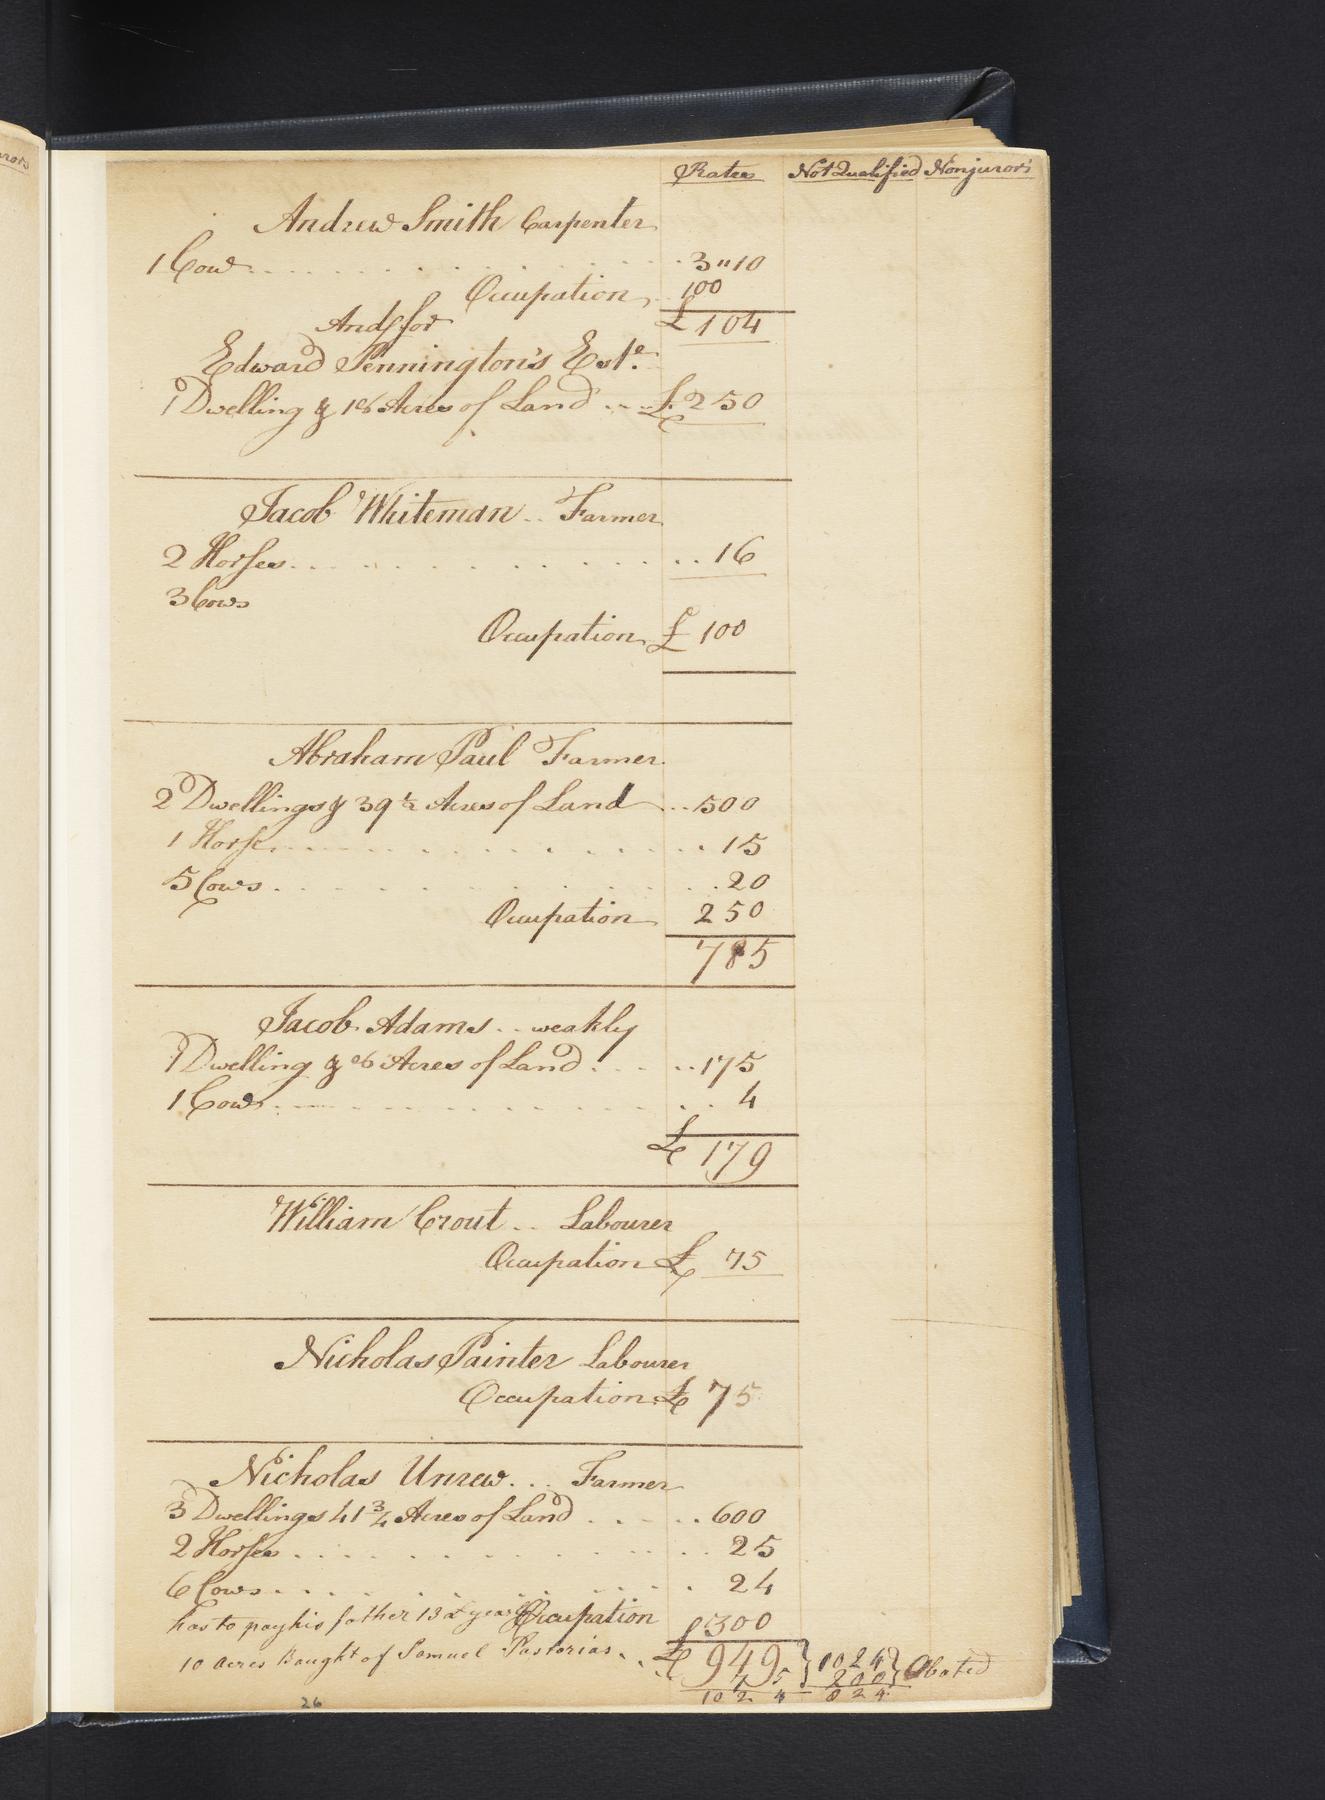 Rates Not Qualified Nonjurors
Andrew Smith Carpenter
1 Cow 3"10
Occupation 100
£104
And for
Edward Pennington's Este.
1 Dwelling & 16 Acres of Land £250
Jacob Whiteman Farmer
2 Horses 16
3 Cows
Occupation £100
Abraham Paul Farmer
2 Dwellings & 39 1/2 Acres of Land 500
1 Horse 15
5 Cows 20
Occupation 250
785
Jacob Adams weakly
1 Dwelling & 6 Acres of Land 175
1 Cow 4
£179
William Crout Labourer
Occupation £75
Nicholas Painter Labourer
Occupation £75
Nicholas Unrew Farmer
3 Dwellings 41 3/4 Acres of Land 600
2 Horses 25
6 Cows 24
has to pay his father 13 £ yearly Occupation 300
10 acres Baught of Samuel Pastorias £949 } 1024 } Abated
75 200
1024 824
26